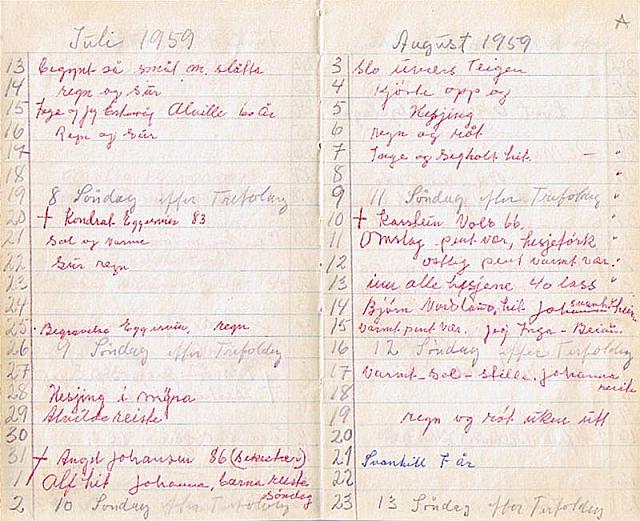 Juli 1959
13 Begynt så smål m. slåtta
14 regn og sur
15 Inge og jeg Alville 60 år
16 Regn og sur
17
18
19 8 Söndag efter Trefoldig
20 + Kondrat Eggesvin 83
21 Sol og varme
22 Sur regn
23
24
25 Begravelse Eggesvin, regn
26 9 Söndag efter Trefoldig
27
28 Hesjing i mýra
29 Alvilde reiste
30
31 + Angel Johansen 86 (Bekkeker)
1 Alf hit Johanna, barna reiste
Söndag
2 10 Söndag efter Trefoldig
A
August 1959
3 Slo Teigen
4 Kjörte opp og
5 Hesjing
6 regn og röt
7 Inge og hit. — "
8 "
9 11 Söndag efter Trefoldig "
10 + Karstein Volb 66 "
11 Omslag - pent vær, hesjetörk "
12 ostlig pent varmt vær. "
13 inn alle hesjene 40 lass "
14 Björn hit Johanna
15 varmt pent vær. Jeg Inga - Beian
16 12 Söndag efter Trefoldig
17 Varmt - Sol - stille. Johanna
reiste
18
19 regn og röt uken utt
20
21 Svanhill 7 år
22
23 13 Söndag efter Trefoldig